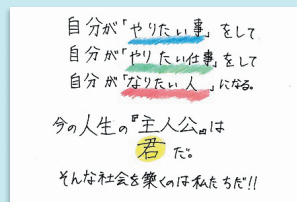 自分が「やりたい事」をして
自分が「やりたい仕事」をして
自分が「なりたい人」になる。
今の人生の『主人公』は
君だ。
そんな社会を築くのは私たちだ!!